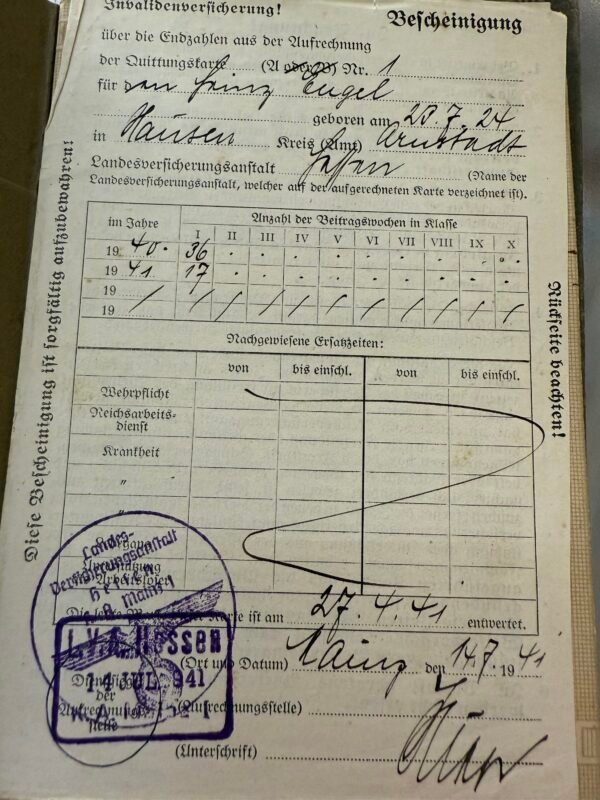 Invalidenversicherung!
Bescheinigung
über die Endzahlen aus der Aufrechnung
der Quittungskarte (A oder B) Nr. 1
für den Heinz Engel
geboren am 23.7.24
in Hausen Kreis (Amt) Arnstadt
Landesversicherungsanstalt Hessen (Name der
Landesversicherungsanstalt, welcher auf der aufgerechneten Karte verzeichnet ist).
im Jahre Anzahl der Beitragswochen in Klasse
I II III IV V VI VII VIII IX X
19 40. 36 . . . . . . . . .
19 41 17 . . . . . . . . .
19 / / / / / / / / / / /
19 / / / / / / / / / / /
Nachgewiesene Ersatzzeiten:
von bis einschl. von bis einschl.
Wehrpflicht
Reichsarbeits-
dienst
Krankheit
"
"
Die letzte der Karte ist am 27.4.41 entwertet.
(Ort und Datum) Mainz den 14.7. 1941
Dienstsiegel
der
Aufrechnungs-
stelle
(Aufrechnungsstelle)
(Unterschrift)
Landes-
Versicherungsanstalt
Hessen
Mainz
L.V.A. Hessen
14 JUL. 941
Diese Bescheinigung ist sorgfältig aufzubewahren!
Rückseite beachten!